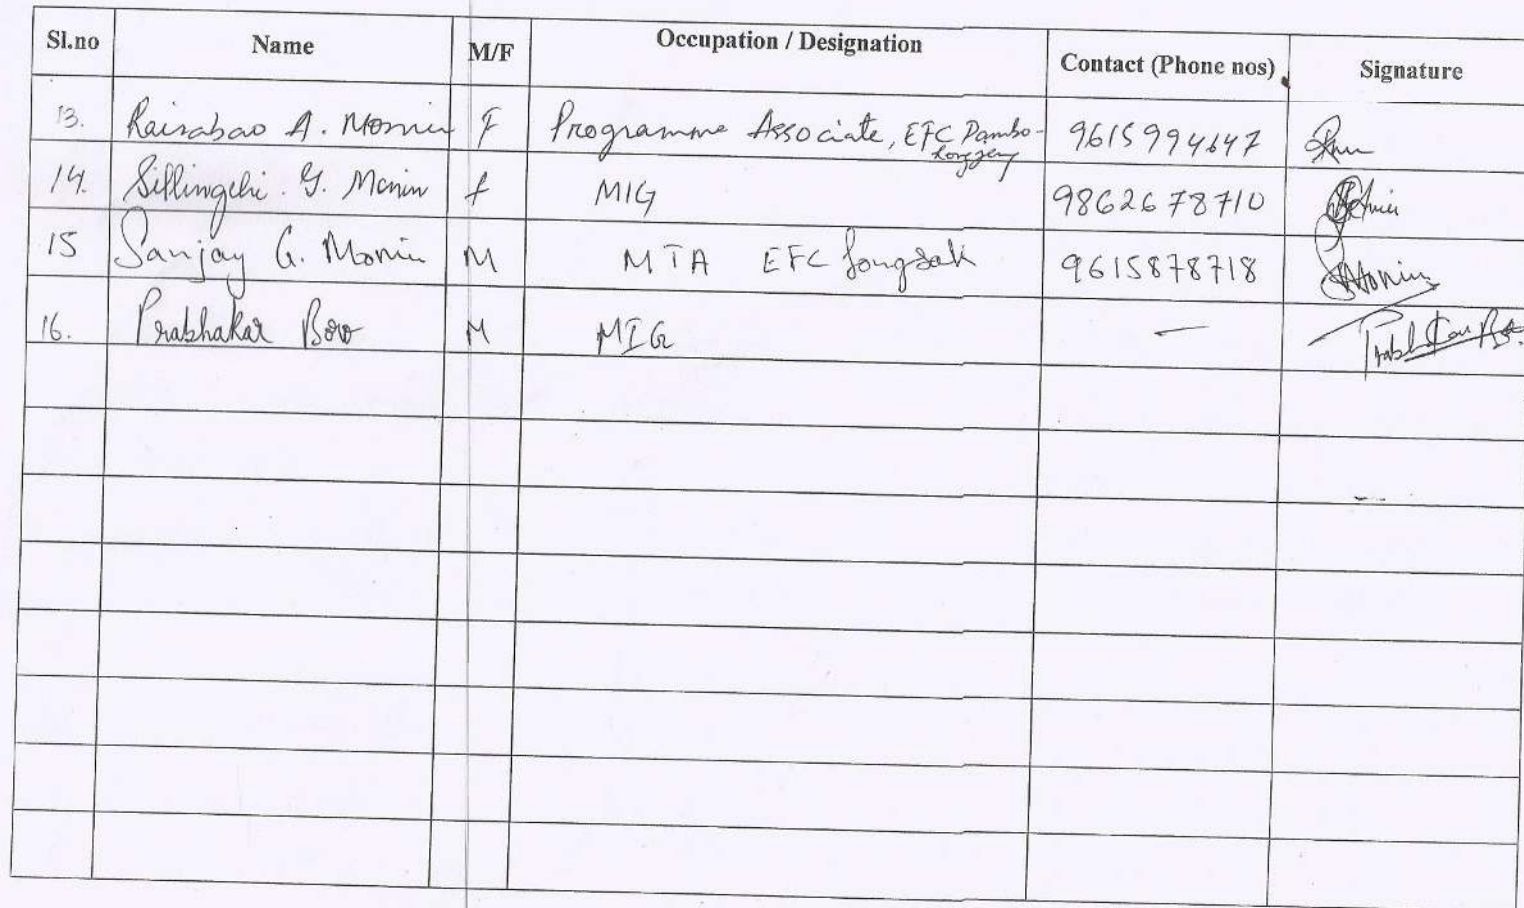 Sl.no Name M/F Occupation / Designation Contact (Phone nos) Signature
13. Rairabao A. Momin F Programme Associate, EFC Dambo-
9615994647
14. Sillingchi. G. Momin f MIG 9862678710
15 Sanjay G. Momin M MTA EFC Songsak 9615878718
16. Prabhakar Boro M MIG —